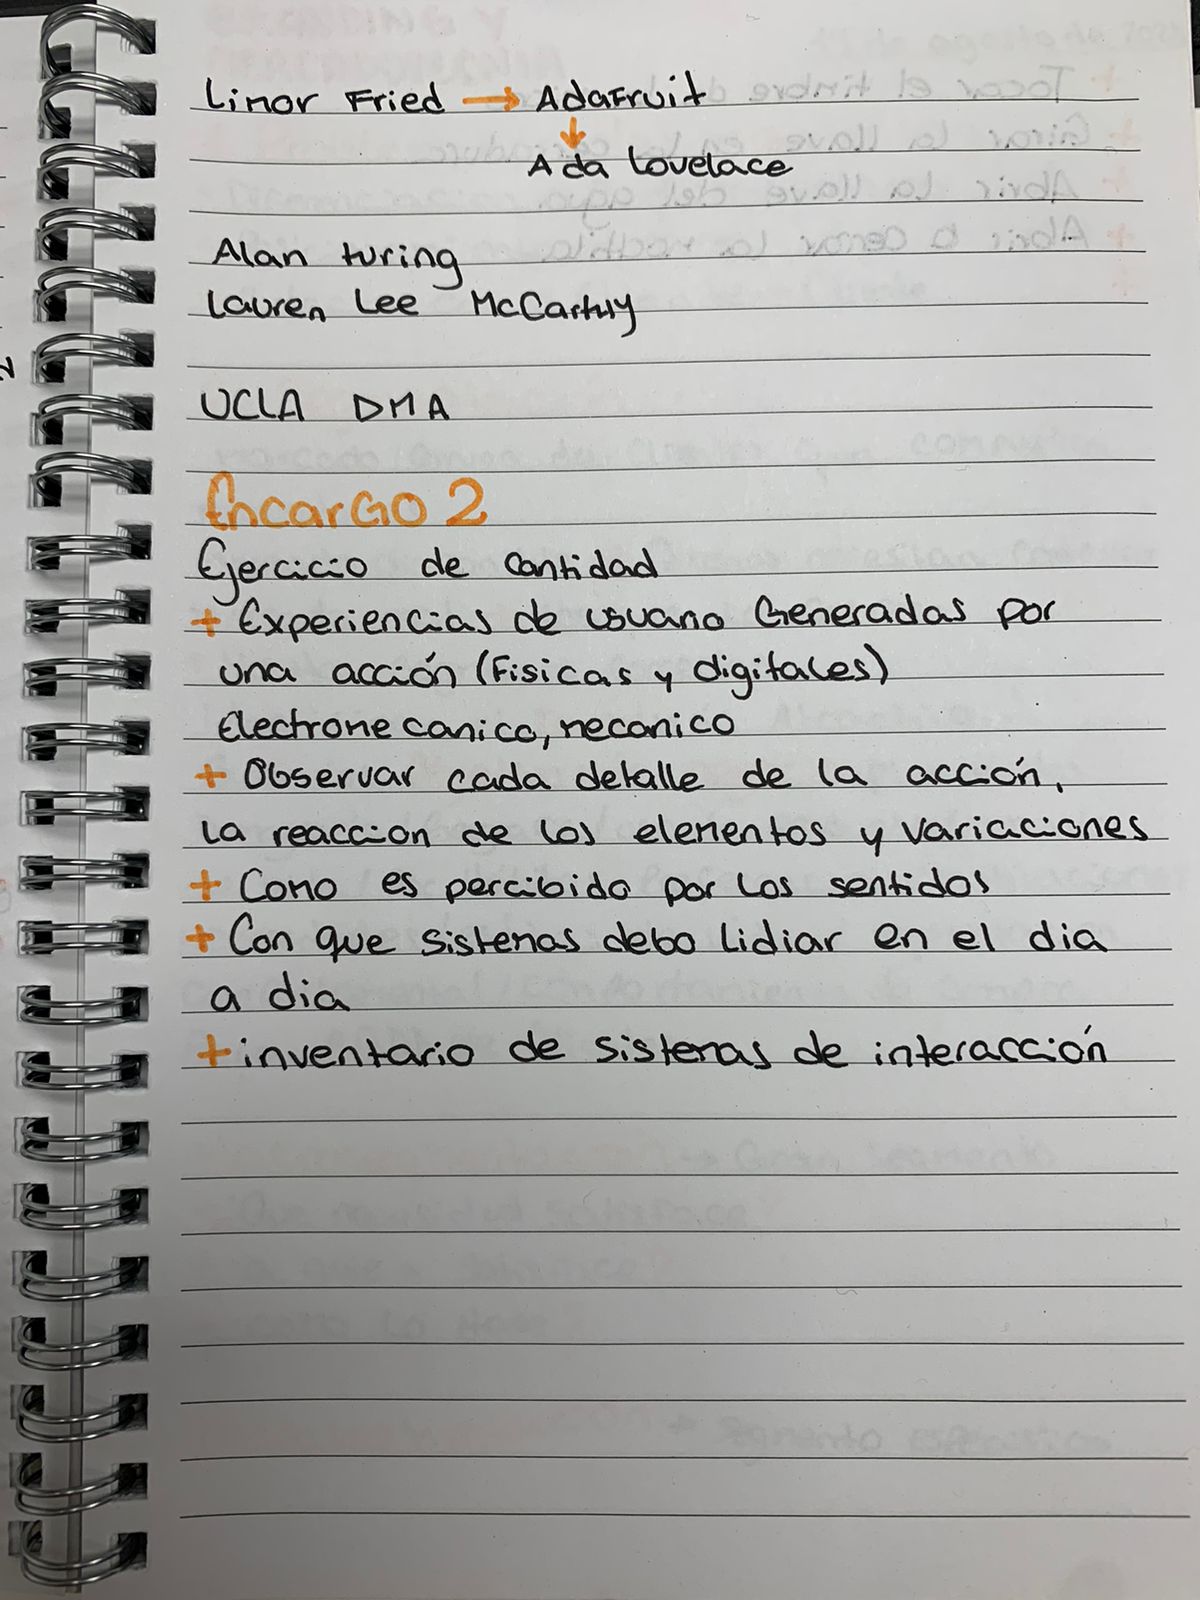 Limor Fried → Adafruit
↓
Ada Lovelace
Alan turing
Lauren Lee McCarthy
UCLA DMA
Encargo 2
Ejercicio de cantidad
+ Experiencias de usuario Generadas por
una acción (Fisicas y digitales)
Electromecanico, mecanico
+ Observar cada detalle de la acción,
la reaccion de los elementos y variaciones
+ Como es percibido por los sentidos
+ Con que sistemas debo lidiar en el dia
a dia
+ inventario de sistemas de interacción